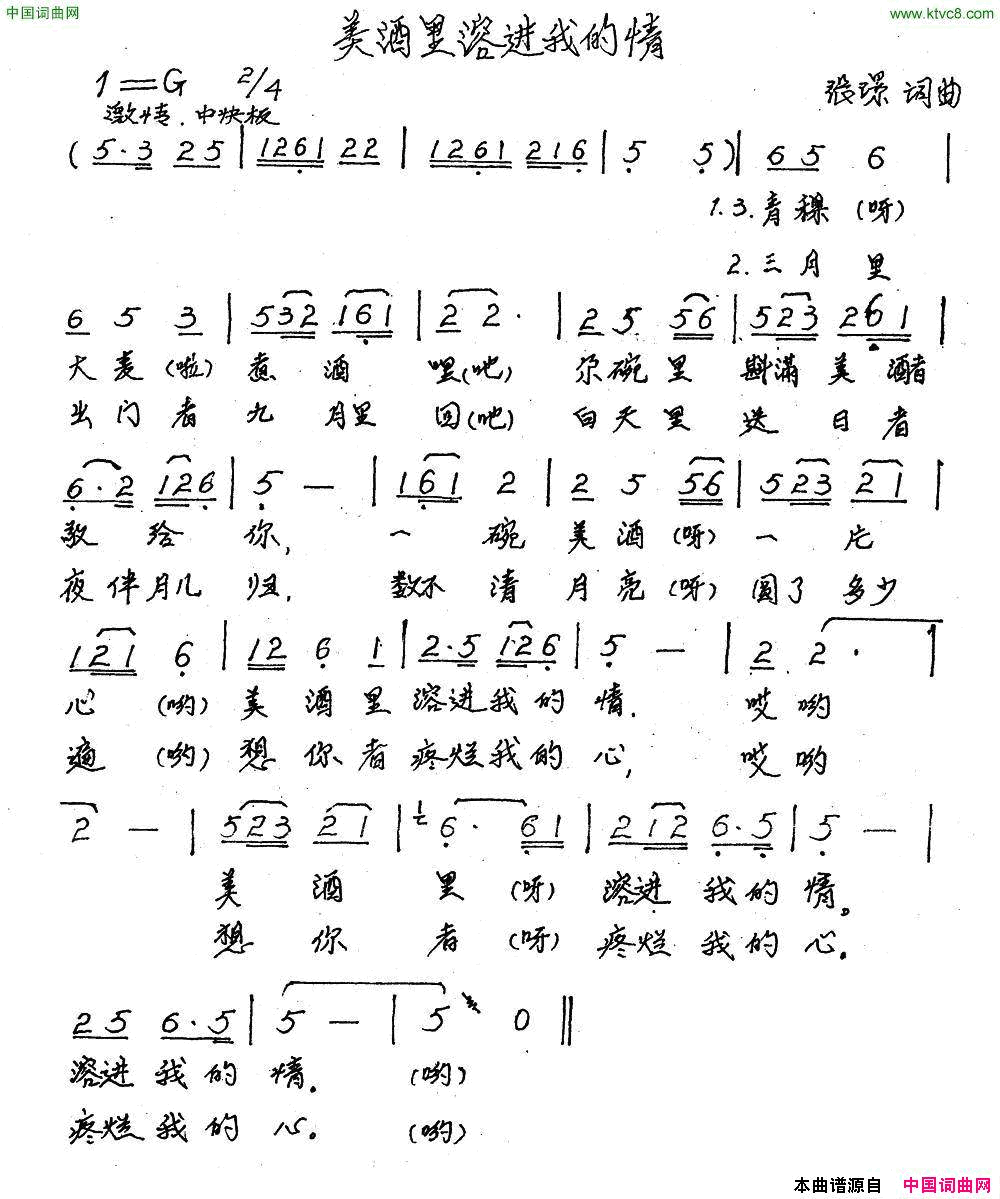 中国词曲网
www.ktvc8.com
美酒里溶进我的情
1=G 2/4
张璟 词曲
激情.中快板
(5·3 25|1261 22|1261 216|5 5)|65 6|
1.3.青稞(呀)
2.三月里
6 5 3|532 161|2 2·|2 5 56|523 261|
大麦(啦)煮酒嘿(吔)尕碗里斟满美酒
出门者九月里回(吔)白天里送日者
6·2 126|5 —|161 2|2 5 56|523 21|
敬给你,一碗美酒(呀)一片
夜伴月儿归,数不清月亮(呀)圆了多少
121 6|12 6 1|2·5 126|5 —|2 2·|
心(哟)美酒里溶进我的情.哎哟
遍(哟)想你者疼烂我的心,哎哟
2 —|523 21|6· 61|212 6·5|5 —|
美酒里(呀)溶进我的情。
想你者(呀)疼烂我的心.
25 6·5|5 —|5 0‖
溶进我的情.(哟)
疼烂我的心.(哟)
本曲谱源自 中国词曲网